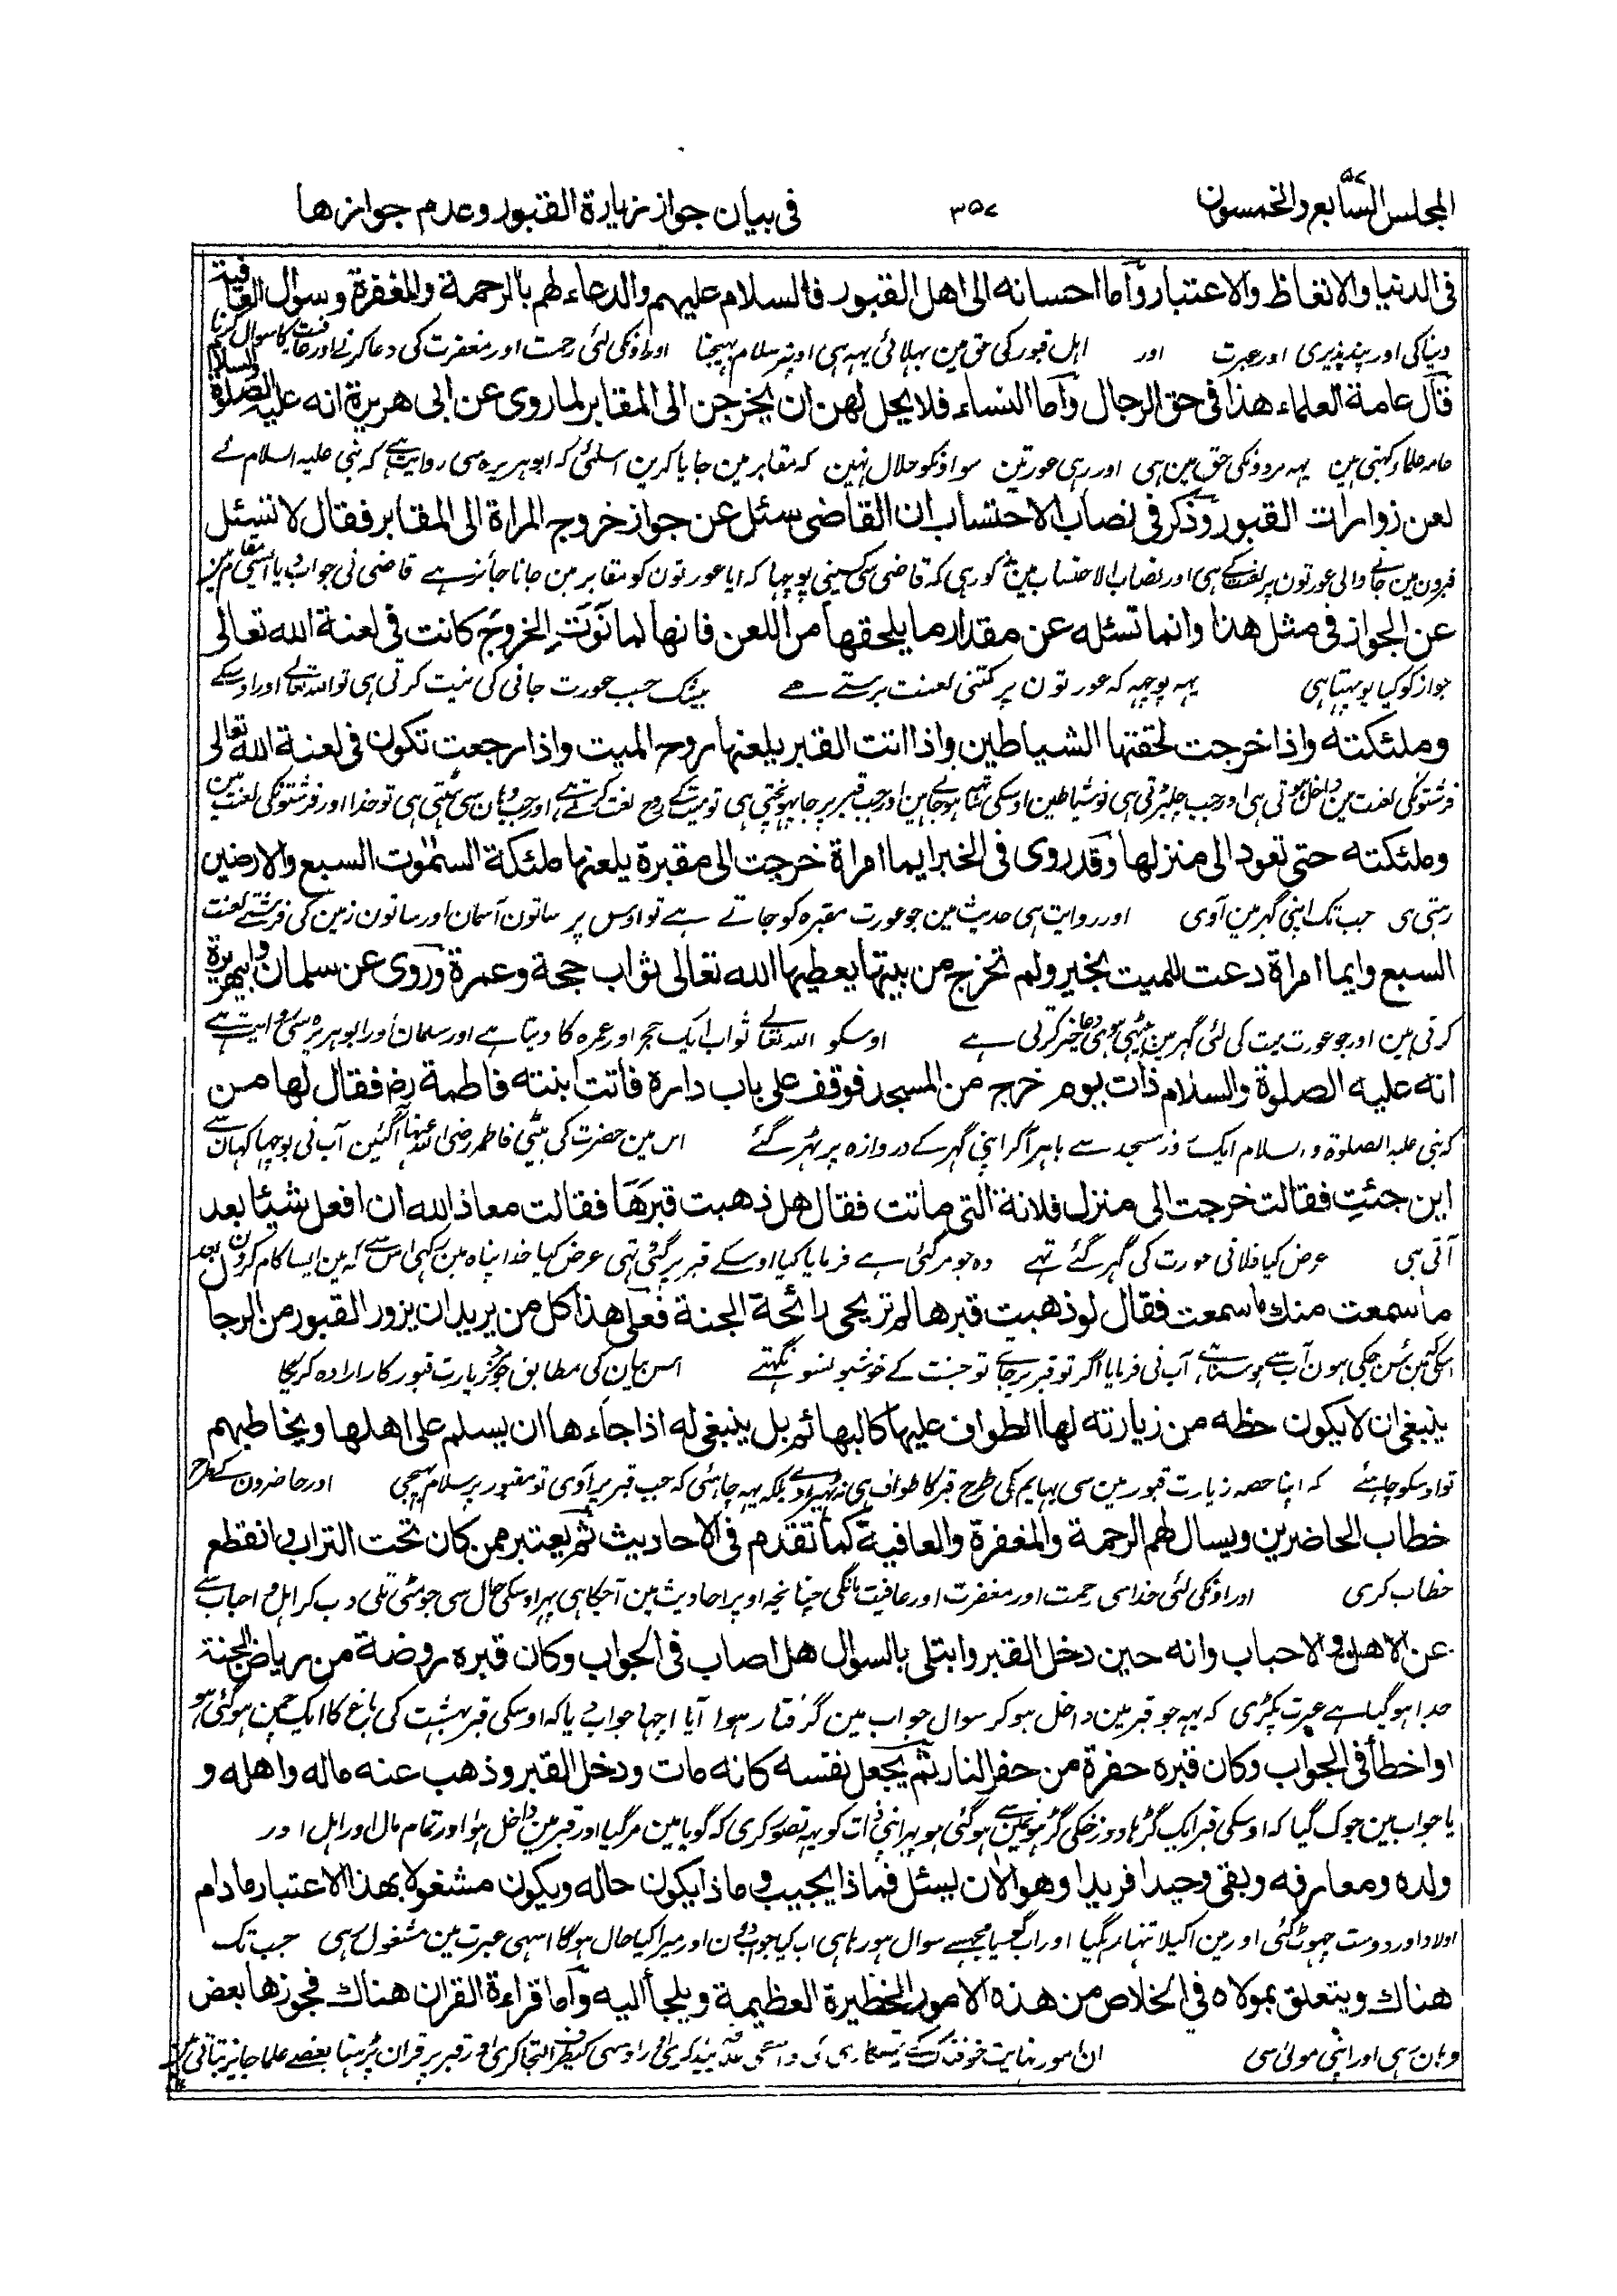 المجلس السابع والخمسون ۵۷ ۳۵۷ فى بيان جواز زيارة القبور وعدم جوازها
فى الدنيا والاتعاظ والاعتبار وأما احسانه الى اهل القبور فالسلام عليهم والدعاء لهم بالرحمة والمغفرة وسوال العافية
دنیا کی اور پند پذیری اور عبرت اور اہل قبور کی حق مین بہلائی یہہ ہی اونپر سلام بہیجنا اور اونکی لئی رحمت اور مغفرت کی دعا کرنے اور عافیت کا سوال کرنا
قال عامة العلماء هذا فى حق الرجال وأما النساء فلا يحل لهن ان يخرجن الى المقابر لما روى عن ابى هريرة انه عليه الصلوة والسلام
عامہ علماء کہتی ہین یہہ مردونکی حق مین ہی اور رہی عورتین سو اونکو حلال نہین کہ مقابر مین جایا کرین اسلئی کہ ابو ہریرہ سی روایت ہے کہ نبی علیہ السلام نے
لعن زوارات القبور وذكر فى نصاب الاحتساب ان القاضى سئل عن جواز خروج المراة الى المقابر فقال لا تسئل
قبرون مین جانے والی عورتون پر لعنت کی ہی اور نصاب الاحتساب مین مذکور ہی کہ قاضی سی کسینی پوچہا کہ ایا عورتون کو مقابر مین جانا جائز ہے قاضی نی جواب دیا
عن الجواز فى مثل هذا وانما تسئله عن مقدار ما يلحقها من اللعن فانها لما نوت الخروج كانت فى لعنة الله تعالى
جواز کو کیا پوچہتا ہی یہہ پوچہہ کہ عورتون پر کتنی لعنت برستے ہے بیشک جب عورت جانی کی نیت کرتی ہی تو اللہ تعالے اور اوسکے
وملئكته واذا خرجت لحقتها الشياطين واذا اتت القبر يلعنها روح الميت واذا رجعت تكون فى لعنة الله تعالى
فرشتونکی لعنت مین داخل ہوتی ہی اور جب چلپڑتی ہی تو شیاطین اوسکی ہوجاتے ہین اور جب قبر پر جا پہونچتی ہی تو میت کے روح لعنت کرتے ہے اور جب وہان سی ہٹتی ہی تو خدا اور فرشتونکی لعنت مین
وملئكته حتى تعود الى منزلها وقد روى فى الخبر ايما امراة خرجت الى مقبرة يلعنها ملئكة السموت السبع والارضين
رہتی ہی جب تک اپنی گہر مین آوی اور روایت ہی حدیث مین جو عورت مقبرہ کو جاتے ہے تو اوس پر ساتون آسمان اور ساتون زمین کی فرشتے لعنت
السبع وايما امراة دعت للميت بخير ولم تخرج من بيتها يعطيها الله تعالى ثواب حجة وعمرة وروى عن سلمان وابى هريرة
کرتی ہین اور جو عورت میت کی لئی گہر مین بیٹھی ہوئی دعا خیر کرتی ہے اوسکو اللہ تعالے ثواب ایک حج اور عمرہ کا دیتا ہے اور سلمان اور ابو ہریرہ سی روایت ہے
انه عليه الصلوة والسلام ذات يوم خرج من المسجد فوقف على باب داره فاتت ابنته فاطمة رض فقال لها من
کہ نبی علیہ الصلوۃ و السلام ایک روز مسجد سے باہر آکر اپنی گہر کے دروازہ پر ٹہر گئے اس مین حضرت کی بیٹی فاطمہ رضی اللہ عنہا آگئین آپ نی پوچہا کہان سے
اين جئت فقالت خرجت الى منزل فلانة التى ماتت فقال هل ذهبت قبرها فقالت معاذ الله ان افعل شيئا بعد
آتی ہی عرض کیا فلانی عورت کی گہر گئے تہے وہ جو مر گئی ہے فرمایا کیا اوسکے قبر پر گئی تہی عرض کیا خدا پناہ مین رکہی اس سے کہ مین ایسا کام کرون بعد
ما سمعت منك ما سمعت فقال لو ذهبت قبرها لم تريحى رائحة الجنة فعلى هذا كل من يريد ان يزور القبور من الرجا
اسکی کہ مین سُن چکی ہون آپ سے جو سنا ہے آپ نی فرمایا اگر تو قبر پر جاتے تو جنت کے خوشبو نسونگہتے اس بیان کی مطابق جو مرد زیارت قبور کا ارادہ کریگا
ينبغى ان لا يكون حظه من زيارته لها الطواف عليها كالبهائم بل ينبغى له اذا جاءها ان يسلم على اهلها ويخاطبهم
تو اوسکو چاہئے کہ اپنا حصہ زیارت قبور مین سی بہایم کی طرح قبر کا طواف ہی نہ ٹہیراوے بلکہ یہہ چاہئی کہ جب قبر پر آوی تو مقبور پر سلام بہیجی اور حاضرون کے طرح
خطاب الحاضرين ويسال لهم الرحمة والمغفرة والعافية كما تقدم فى الاحاديث ثم يعتبر ممن كان تحت التراب وانقطع
خطاب کری اور اونکی لئی خدا سی رحمت اور مغفرت اور عافیت مانگی چنانچہ اوپر احادیث مین آچکا ہی پہر اوسکی حال سی جو مٹی تلی دب کر اہل و احباب سے
عن الاهل والاحباب وانه حين دخل القبر وابتلى بالسؤال هل اصاب فى الجواب وكان قبره روضة من رياض الجنة
جدا ہوگیا ہے عبرت پکڑی کہ یہہ جو قبر مین داخل ہوکر سوال جواب مین گرفتار ہوا آیا اچہا جواب دیا کہ اوسکی قبر بہشت کی باغ کا ایک چمن ہوگئی ہو
او اخطأ فى الجواب وكان قبره حفرة من حفر النار ثم يجعل نفسه كانه مات ودخل القبر وذهب عنه ماله واهله و
یا جواب مین چوک گیا کہ اوسکی قبر ایک گڑہا دوزخکی گڑہون مین سے ہوگئی ہو پہر اپنی ذات کو یہہ تصور کری کہ گویا مین مرگیا اور قبر مین داخل ہوا اور تمام مال اور اہل اور
ولده ومعارفه وبقى وحيدا فريدا وهو الان يسئل فماذا يجيب وماذا يكون حاله ويكون مشغولا بهذا الاعتبار ما دام
اولاد اور دوست چہوٹ گئی اور مین اکیلا تنہا رہگیا اور اب مجہسے سوال ہو رہا ہی اب کیا جواب دون اور میرا کیا حال ہوگا اسہی عبرت مین مشغول رہی جب تک
هناك ويتعلق بمولاه فى الخلاص من هذه الامور الخطيرة العظيمة ويلجأ اليه وأما قراءة القران هناك فجوزها بعض
وہان رہی اور اپنی مولی سی ان امور نہایت خوفناک کے اور قبر پر قران پڑہنا بعضے علما جائز بتاتی